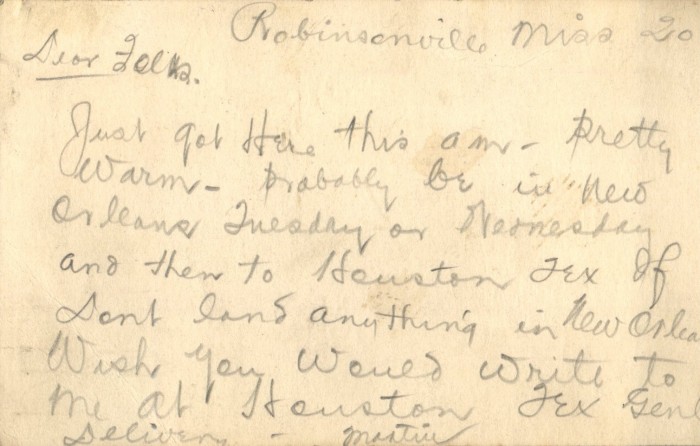 Robinsonville Miss 20
Dear Folks.
Just got Here this am - Pretty
Warm - Probably be in New
Orleans Tuesday or Wednesday
and then to Houston Tex If
Dont land anything in New Orlea
Wish You Would Write to
Me at Houston Tex Genl
Delivery - Martin